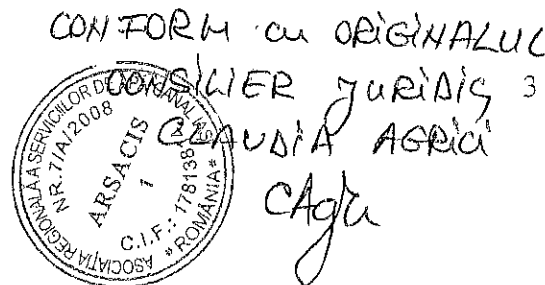 CONFORM cu ORIGINALUL
CONSILIER JURIDIC 3
CLAUDIA AGRICI
ASOCIAȚIA REGIONALĂ A SERVICIILOR DE
NR. 7/A/2008
ARSACIS
1
C.I.F.:
* ROMÂNIA *